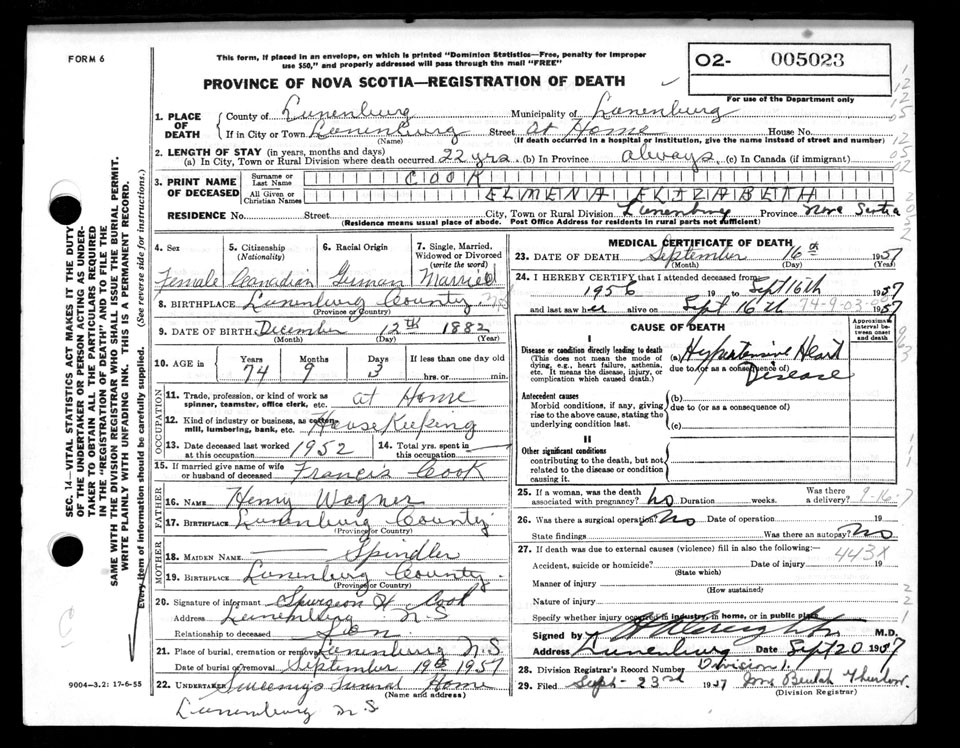 FORM 6
This form, if placed in an envelope, on which is printed "Dominion Statistics—Free, penalty for improper
use $50," and properly addressed will pass through the mail "FREE"
PROVINCE OF NOVA SCOTIA—REGISTRATION OF DEATH
O2- 005023
For use of the Department only
SEC. 14—VITAL STATISTICS ACT MAKES IT THE DUTY
OF THE UNDERTAKER OR PERSON ACTING AS UNDER-
TAKER TO OBTAIN ALL THE PARTICULARS REQUIRED
IN THE "REGISTRATION OF DEATH" AND TO FILE THE
SAME WITH THE DIVISION REGISTRAR WHO SHALL ISSUE THE BURIAL PERMIT.
WRITE PLAINLY WITH UNFADING INK. THIS IS A PERMANENT RECORD.
Every item of information should be carefully supplied. (See reverse side for instructions.)
1. PLACE OF DEATH
County of Lunenburg Municipality of Lunenburg
If in City or Town Lunenburg Street at Home House No.
(Name) (If death occurred in a hospital or institution, give the name instead of street and number)
2. LENGTH OF STAY (in years, months and days)
(a) In City, Town or Rural Division where death occurred 22 yrs (b) In Province always (c) In Canada (if immigrant)
3. PRINT NAME OF DECEASED
Surname or Last Name COOK
All Given or Christian Names ELMENA ELIZABETH
RESIDENCE No. Street City, Town or Rural Division Lunenburg Province Nova Scotia
(Residence means usual place of abode. Post Office Address for residents in rural parts not sufficient)
4. Sex Female
5. Citizenship (Nationality) Canadian
6. Racial Origin German
7. Single, Married, Widowed or Divorced (write the word) Married
8. BIRTHPLACE Lunenburg County
(Province or Country)
9. DATE OF BIRTH December 12th 1882
(Month) (Day) (Year)
10. AGE Years 74 Months 9 Days 3 If less than one day old
hrs. or min.
OCCUPATION
11. Trade, profession, or kind of work as spinner, teamster, office clerk, etc. at Home
12. Kind of industry or business, as cotton mill, lumbering, bank, etc. House Keeping
13. Date deceased last worked at this occupation 1952
14. Total yrs. spent in this occupation
15. If married give name of wife or husband of deceased Francis Cook
FATHER
16. NAME Henry Wagner
17. BIRTHPLACE Lunenburg County
(Province or Country)
MOTHER
18. MAIDEN NAME Spindler
19. BIRTHPLACE Lunenburg County
(Province or Country)
20. Signature of informant Spurgeon H. Cook
Address Lunenburg N S
Relationship to deceased Son
21. Place of burial, cremation or removal Lunenburg N.S.
Date of burial or removal September 19th 1957
22. Undertaker Funeral Home
(Name and address)
Lunenburg N S
9004-3.2: 17-6-55
MEDICAL CERTIFICATE OF DEATH
23. DATE OF DEATH September 16th 1957
(Month) (Day) (Year)
24. I HEREBY CERTIFY that I attended deceased from
1956 19 to Sept 16th 1957
and last saw her alive on Sept 16th 1957
CAUSE OF DEATH
Approximate interval between onset and death
I
Disease or condition directly leading to death (a) Hypertensive Heart Disease
(This does not mean the mode of dying, e.g., heart failure, asthenia, etc. It means the disease, injury, or complication which caused death.)
due to (or as a consequence of)
Antecedent causes
Morbid conditions, if any, giving rise to the above cause, stating the underlying condition last.
(b)
due to (or as a consequence of)
(c)
II
Other significant conditions
contributing to the death, but not related to the disease or condition causing it.
25. If a woman, was the death associated with pregnancy? no Duration weeks. Was there a delivery?
9-16-7
26. Was there a surgical operation? No Date of operation 19
State findings Was there an autopsy? No
27. If death was due to external causes (violence) fill in also the following:—
443X
Accident, suicide or homicide? Date of injury 19
(State which)
Manner of injury
(How sustained)
Nature of injury
Specify whether injury occurred in industry, in home, or in public place
Signed by M.D.
Address Lunenburg Date Sept 20 1957
28. Division Registrar's Record Number Division 1.
29. Filed Sept- 23rd 1957 Mrs Beulah Thurlow
(Division Registrar)